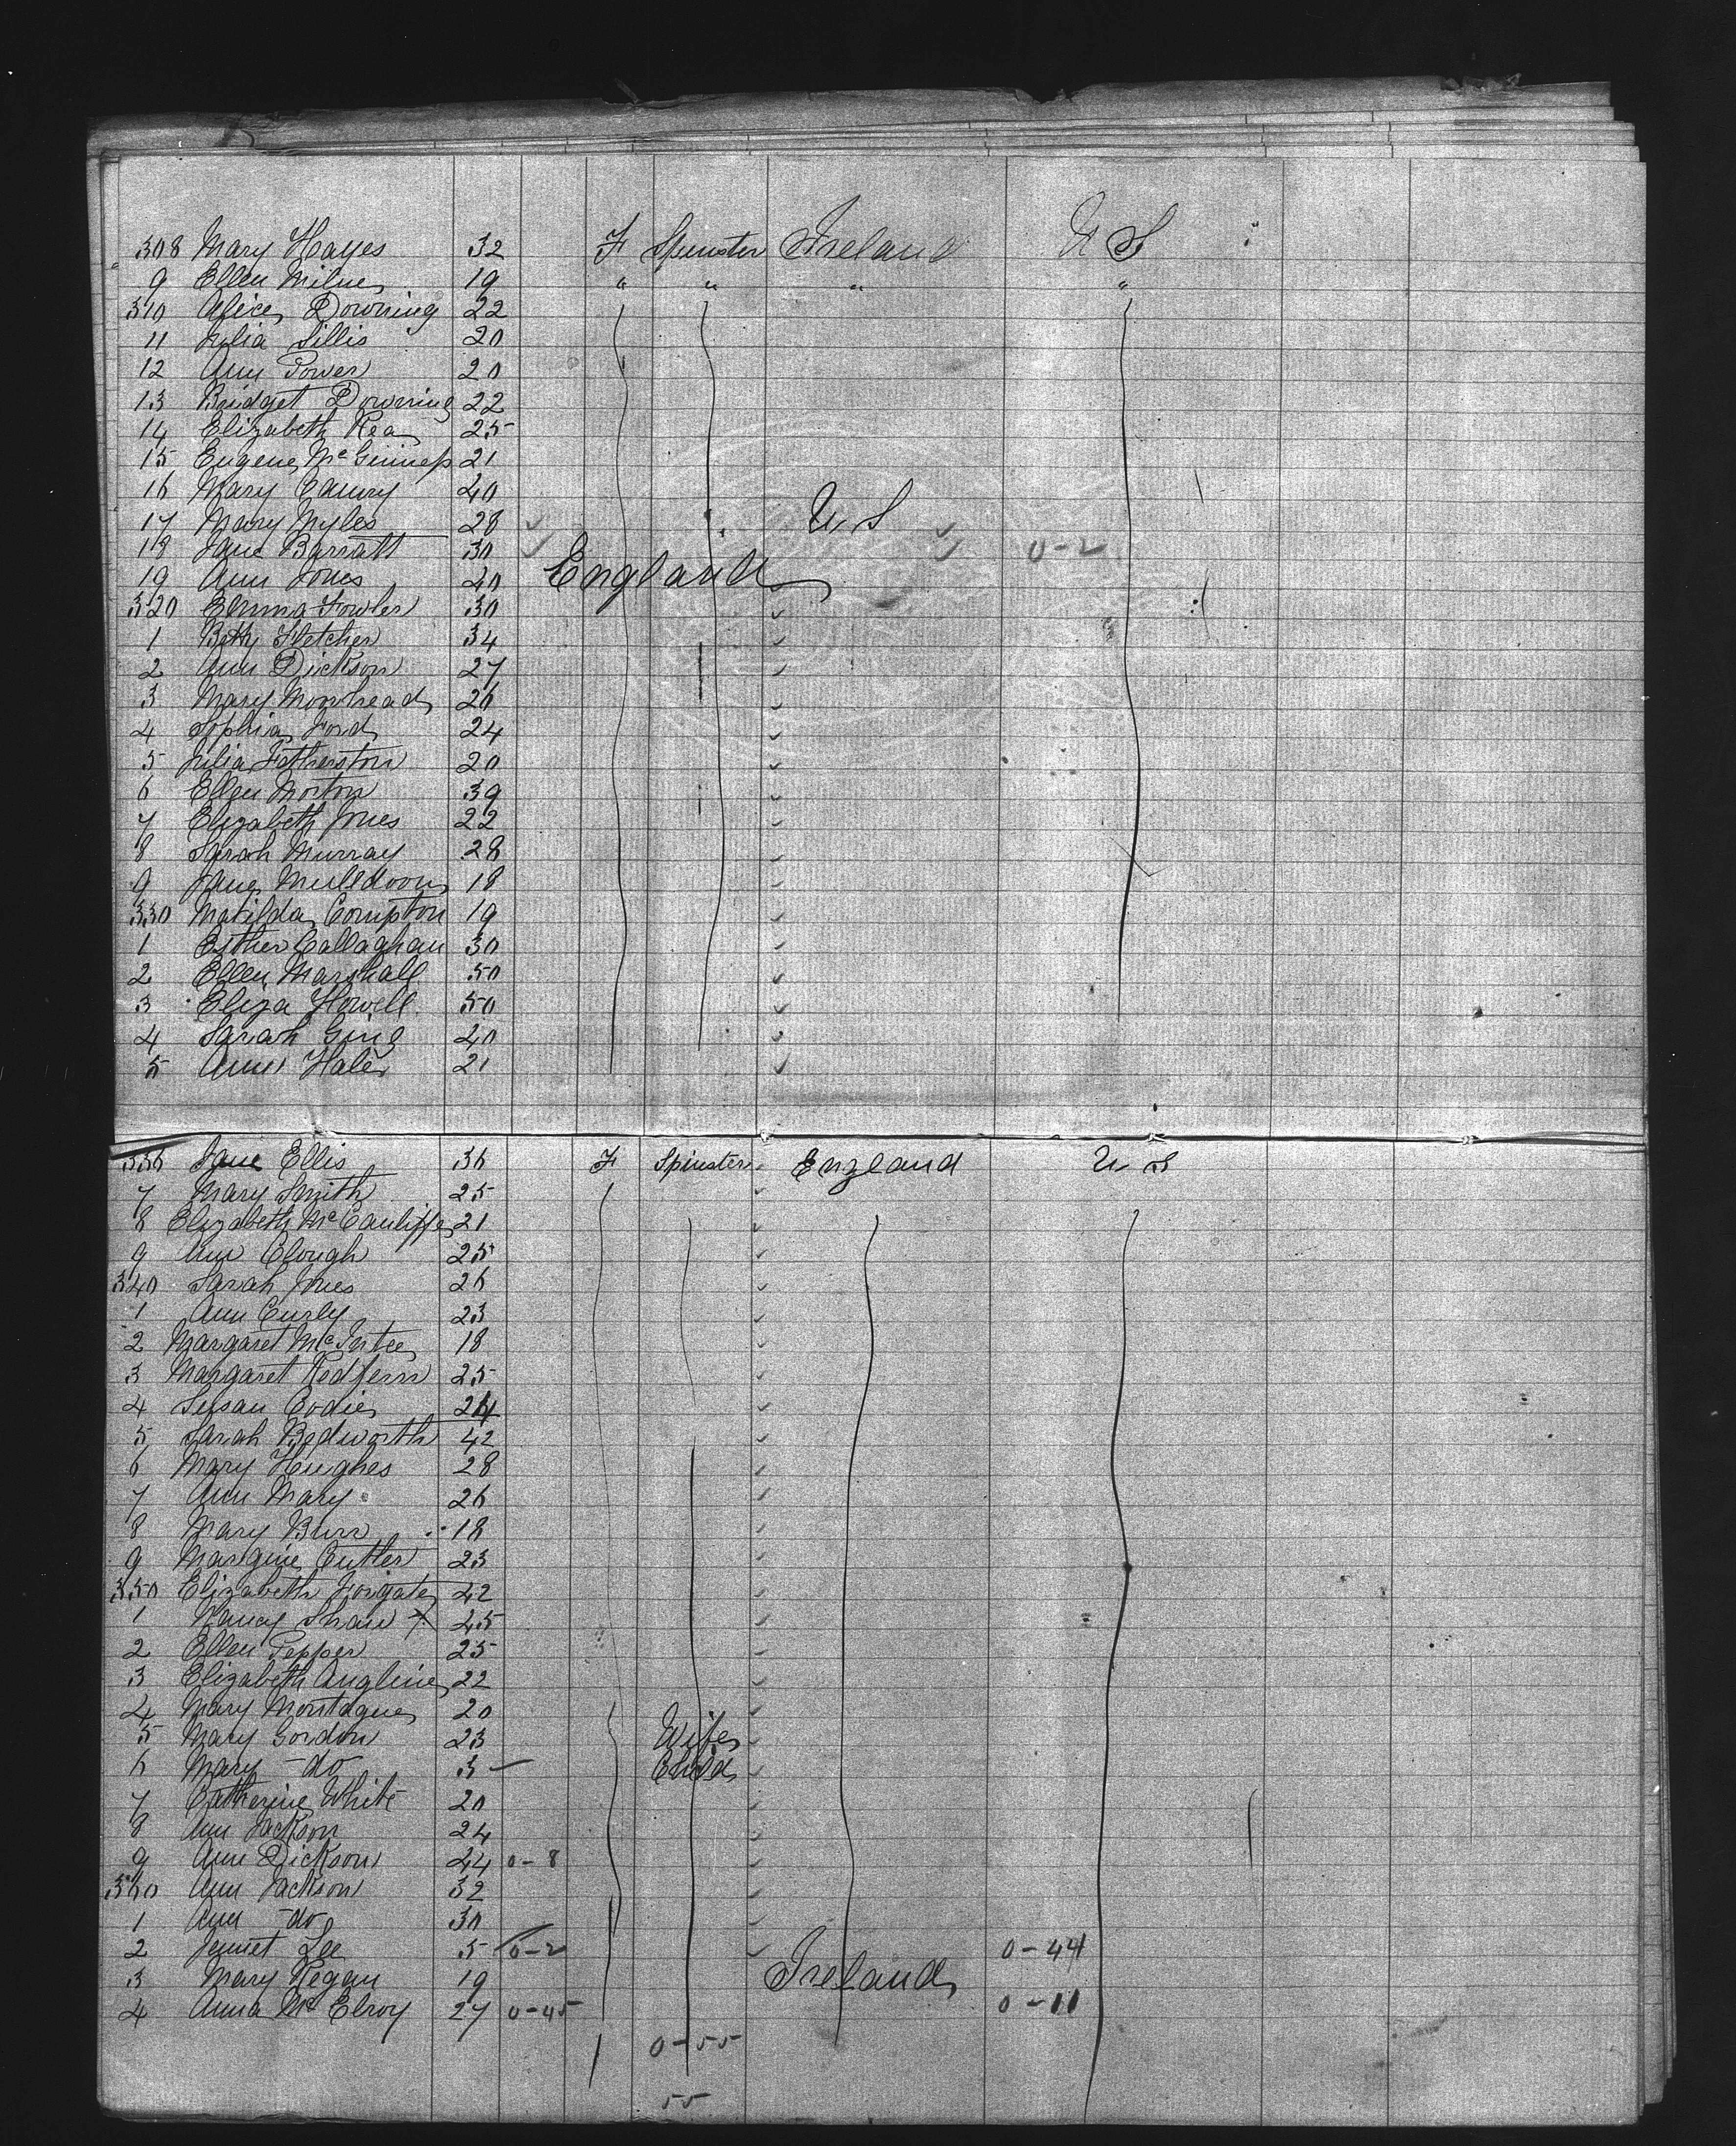 308 Mary Hayes 32 F Spinster Ireland U S
9 Ellen Milne 19 " " " "
310 Alice Downing 22
11 Julia Lillis 20
12 Ann Power 20
13 Bridget Downing 22
14 Elizabeth Rea 25
15 Eugene McGinness 21
16 Mary 40
17 Mary Myles 28 U S
18 Jane Barratt 30 0-2
19 Ann Jones 40 England
320 Emma Fowler 30
1 Betty Fletcher 34
2 Ann Dickson 27
3 Mary Moorhead 26
4 Sophia Ford 24
5 Julia Fetherston 20
6 Ellen Morton 39
7 Elizabeth Jones 22
8 Sarah Murray 28
9 Jane Muldoon 18
330 Matilda Compton 19
1 Esther Callaghan 30
2 Ellen Marshall 50
3 Eliza Howell 50
4 Sarah 40
5 Ann Hales 21
336 Jane Ellis 36 F Spinster England U S
7 Mary Smith 25
8 Elizabeth McCauliffe 21
9 Ann Clough 25
340 Sarah Jones 26
1 Ann Curly 23
2 Margaret McIntee 18
3 Margaret Redfern 25
4 Susan Codie 24
5 Sarah Bedworth 42
6 Mary Hughes 28
7 Ann Mary 26
8 Mary Burr 18
9 Cutler 23
350 Elizabeth 42
1 Nancy Shaw x 45
2 Ellen Pepper 25
3 Elizabeth Angline 22
4 Mary Montague 20
5 Mary Gordon 23 Wife
6 Mary -do 3 Child
7 Catherine White 20
8 Ann Jackson 24
9 Ann Dickson 24 0-8
360 Ann Jackson 32
1 Ann -do 30
2 Jennet Lee 5 0-2 0-44
3 Mary Regan 19 Ireland
4 Anna McElroy 27 0-45 0-11
0-55
55